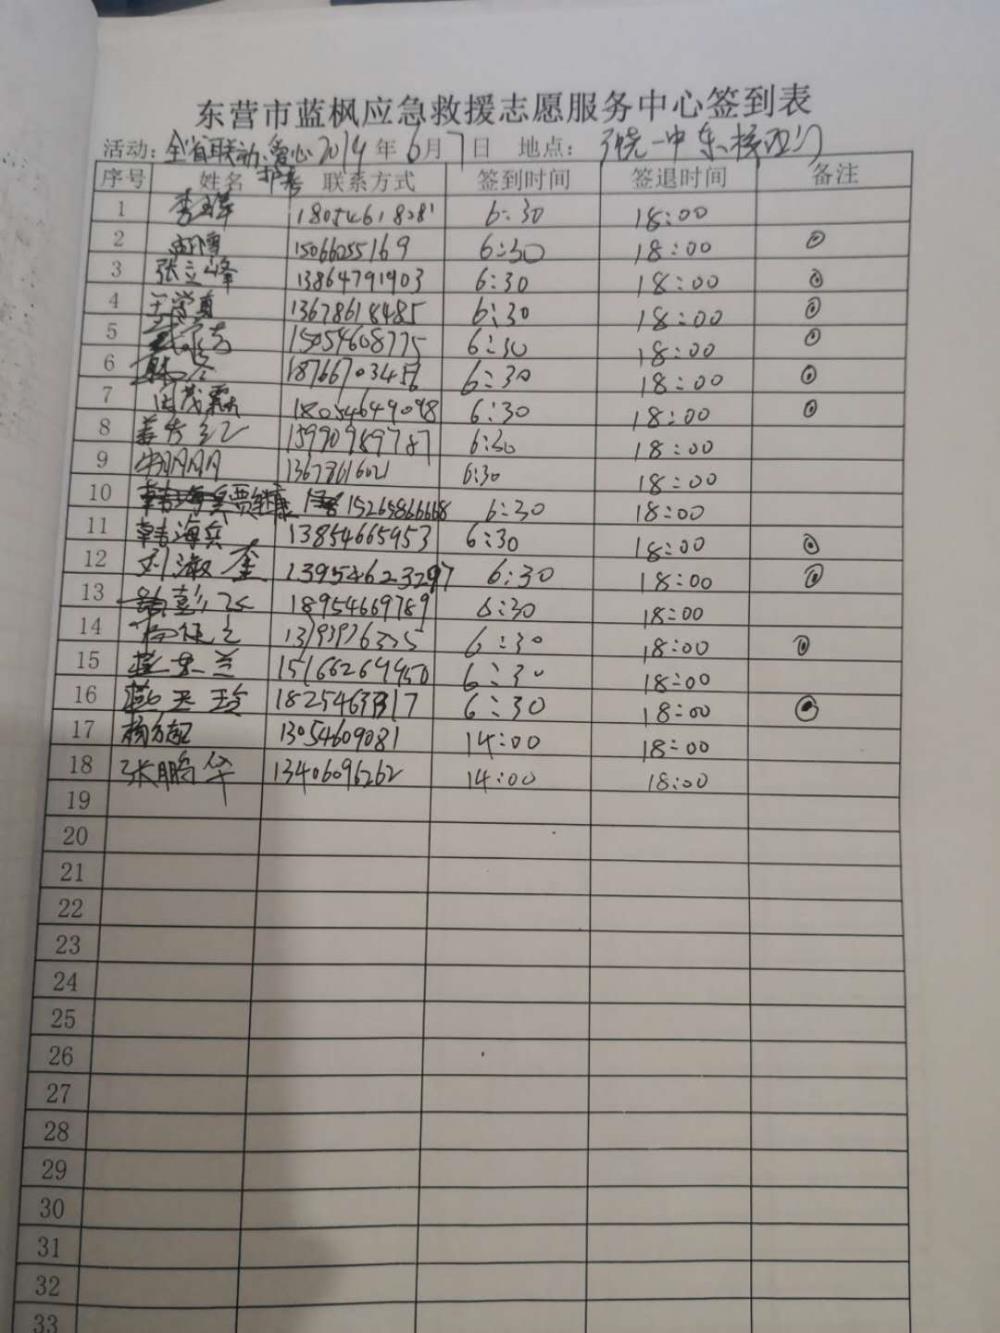 东营市蓝枫应急救援志愿服务中心签到表
活动：全省联动·爱心护考 2019年6月7日 地点： 一中东校西门
序号 姓名 联系方式 签到时间 签退时间 备注
1 18054618281 6:30 18:00
2 15066255169 6:30 18:00
3 张立峰 13864791903 6:30 18:00
4 13678618485 6:30 18:00
5 15054608775 6:30 18:00
6 6:30 18:00
7 18054649098 6:30 18:00
8 15990989787 6:30 18:00
9 6:30 18:00
10 15265866668 6:30 18:00
11 韩海兵 13854665953 6:30 18:00
12 刘淑奎 13954623297 6:30 18:00
13 18954669789 6:30 18:00
14 6:30 18:00
15 15166269450 6:30 18:00
16 6:30 18:00
17 13054609081 14:00 18:00
18 张鹏华 13406096262 14:00 18:00
19
20
21
22
23
24
25
26
27
28
29
30
31
32
33